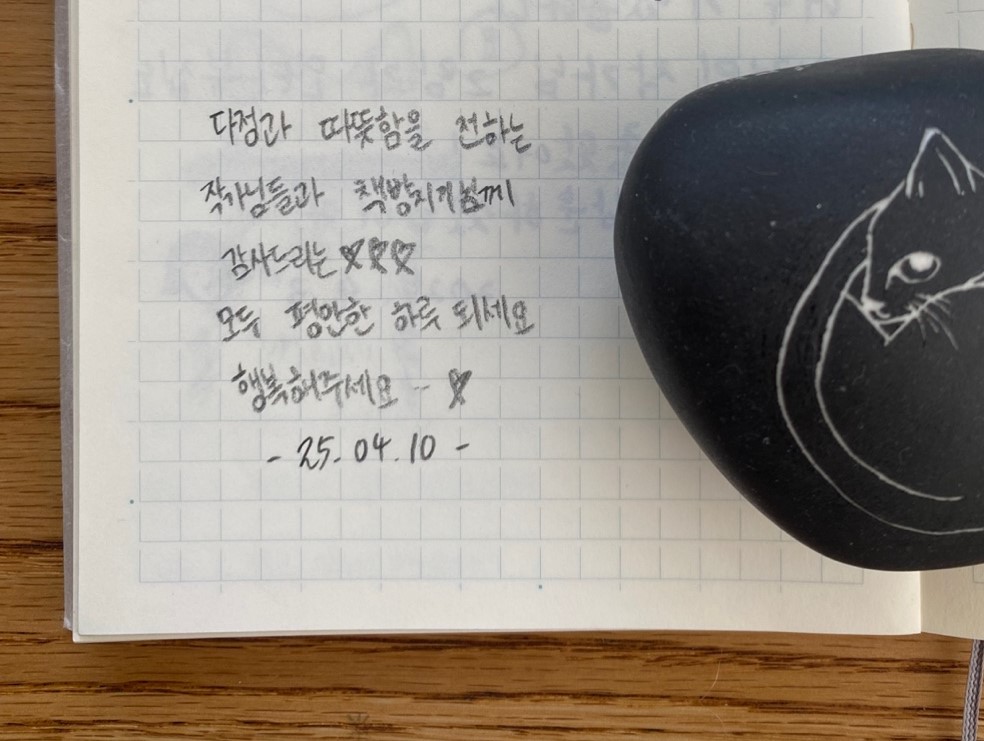 다정과 따뜻함을 전하는
작가님들과 책방지기님께
감사드리는 ♡♡♡
모두 평안한 하루 되세요
행복해주세요 - ♡
- 25. 04. 10 -